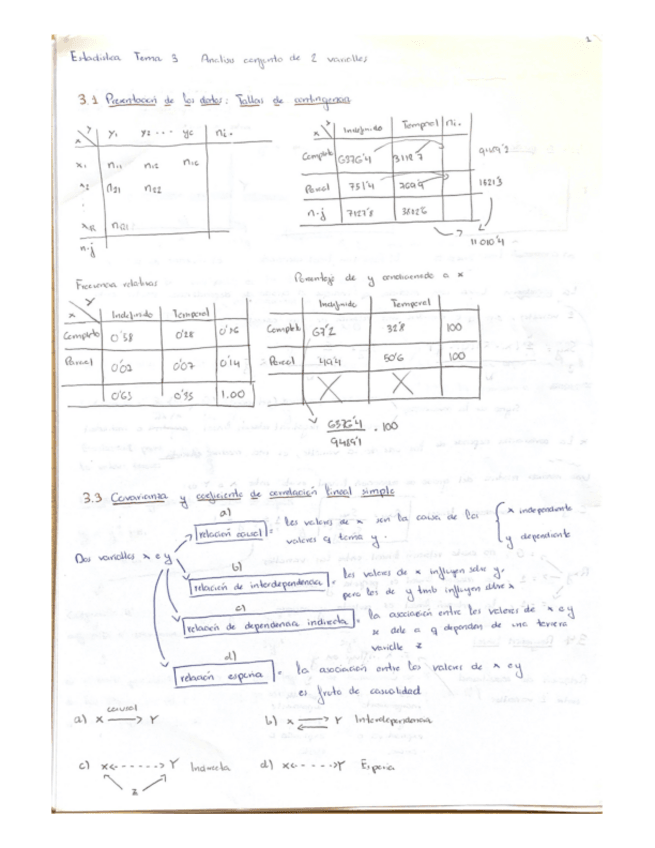 1
Estadística Tema 3 Analisis conjunto de 2 variables
3.1 Presentacion de los datos: Tablas de contingencia
x y y1 y2 ... yc ni.
x1 n11 n12 n1c
x2 n21 n22
xR nR1
n.j
x y Indefinido Temporal ni.
Completo 6376'4
Parcial 751'4
n.j 7127'8 3882'6
11010'4
Frecuencia relativas
x y Indefinido Temporal
Completo 0'58 0'28
Parcial 0'07 0'14
0'35 1.00
Porcentaje de y condicionado a x
Indefinido Temporal
Completo 67'2 32'8 100
Parcial 49'4 50'6 100
. 100
3.3 Covarianza y coeficiente de correlación lineal simple
Dos variables x e y
a)
relación causal = los valores de x son la causa de los
valores q toma y.
x independiente
y dependiente
b)
relación de interdependencia = los valores de x influyen sobre y,
pero los de y tmb influyen sobre x
c)
relación de dependencia indirecta = la asociación entre los valores de x e y
se debe a q dependen de una tercera
variable z
d)
relación espuria = la asociación entre los valores de x e y
es fruto de casualidad
a) x causal Y
b) x Y Interdependencia
c) x Y Indirecta
z
d) x Y Espuria